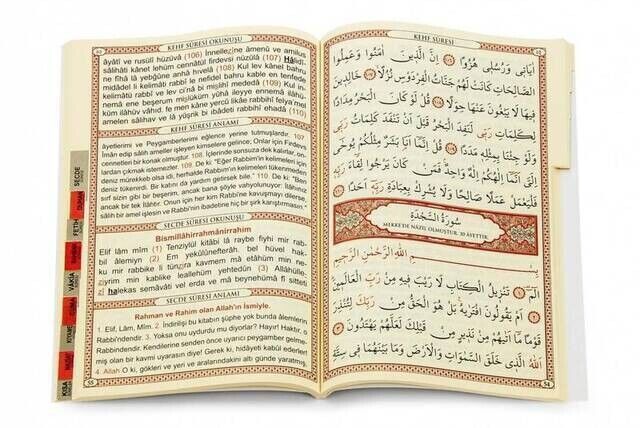 KEHF SÛRESİ OKUNUŞU
âyâtî ve rusulî hüzüvâ (106) İnnellezîne âmenû ve amilus
sâlihâti kânet lehüm cennâtül firdevsi nüzülâ (107) Hâlidî-
ne fîhâ lâ yebğûne anhâ hıvelâ (108) Kul lev kânel bahru
midâdel li kelimâti rabbî le nefidel bahru kable en tenfede
kelimâtü rabbî ve lev ci'nâ bi mişlihî mededâ (109) Kul in-
nemâ ene beşerum mişlüküm yûhâ ileyye ennemâ ilâhü-
küm ilâhuv vâhid, fe men kâne yercû likâe rabbihî felya'mel
amelen sâlihav ve lâ yüşrik bi ıbâdeti rabbihî ehadâ (110)
KEHF SÛRESİ ANLAMI
âyetlerimi ve Peygamberlerimi eğlence yerine tutmuşlardır. 107
İman edip sâlih ameller işleyen kimselere gelince; Onlar için Firdevs
cennetleri bir konak olmuştur. 108. İçlerinde sonsuza dek kalırlar, on-
dan çıkmak istemezler. 109. De ki: "Eğer Rabbim'in kelimeleri için
deniz mürekkeb olsa idi, herhalde Rabbimin kelimeleri tükenmeden
deniz tükenirdi. Bir katını da yardım getirsek bile." 110. De ki: "Ben
sırf sizin gibi bir beşerim, ancak bana şöyle vahyolunuyor: İlâhınız
ancak bir tek İlâhtır. Onun için her kim Rabbi'ne kavuşmayı dilerse,
sâlih bir amel işlesin ve Rabbi'nin ibadetine hiç bir şirk karıştırmasın."
SECDE SÛRESİ OKUNUŞU
Bismillâhirrahmânirrahim
Elif lâm mîm (1) Tenzîylül kitâbi lâ raybe fîyhi mir rab-
bil âlemiyn (2) Em yekûlûnefterâh, bel hüvel hak-
ku mir rabbike li tünzira kavmem mâ etâhüm min ne-
ziyrim min kablike leallehüm yehtedûn (3) Allâhülle-
zî halekas semâvâti vel erda ve mâ beynehümâ fî sitteti
SECDE SÛRESİ ANLAMI
Rahman ve Rahim olan Allah'ın İsmiyle.
1. Elif, Lâm, Mîm. 2. İndirilişi bu kitabın şüphe yok bunda âlemlerin
Rabbi'ndendir. 3. Yoksa onu uydurdu mu diyorlar? Hayır! Haktır, o
Rabbindendir. Kendilerine senden önce uyarıcı peygamber gelme-
miş olan bir kavmi uyarasın diye! Gerek ki, hidâyeti kabul ederler!
4. Allah O ki, gökleri ve yeri ve aralarındakini altı günde yaratmış,
KEHF SÛRESİ
اٰيَاتٖى وَرُسُلٖى هُزُوًا ﴿١٠٦﴾ اِنَّ الَّذٖينَ اٰمَنُوا وَعَمِلُوا
الصَّالِحَاتِ كَانَتْ لَهُمْ جَنَّاتُ الْفِرْدَوْسِ نُزُلًا ﴿١٠٧﴾ خَالِدٖينَ
فٖيهَا لَا يَبْغُونَ عَنْهَا حِوَلًا ﴿١٠٨﴾ قُلْ لَوْ كَانَ الْبَحْرُ مِدَادًا
لِكَلِمَاتِ رَبّٖى لَنَفِدَ الْبَحْرُ قَبْلَ اَنْ تَنْفَدَ كَلِمَاتُ رَبّٖى
وَلَوْ جِئْنَا بِمِثْلِهٖ مَدَدًا ﴿١٠٩﴾ قُلْ اِنَّمَا اَنَا بَشَرٌ مِثْلُكُمْ يُوحٰى
اِلَىَّ اَنَّمَا اِلٰهُكُمْ اِلٰهٌ وَاحِدٌ فَمَنْ كَانَ يَرْجُوا لِقَاءَ رَبِّهٖ
فَلْيَعْمَلْ عَمَلًا صَالِحًا وَلَا يُشْرِكْ بِعِبَادَةِ رَبِّهٖ اَحَدًا ﴿١١٠﴾
سُورَةُ السَّجْدَةِ
MEKKE'DE NÂZİL OLMUŞTUR. 30 ÂYETTİR.
بِسْمِ اللّٰهِ الرَّحْمٰنِ الرَّحٖيمِ
الٓمٓ ﴿١﴾ تَنْزٖيلُ الْكِتَابِ لَا رَيْبَ فٖيهِ مِنْ رَبِّ الْعَالَمٖينَ
﴿٢﴾ اَمْ يَقُولُونَ افْتَرٰيهُ بَلْ هُوَ الْحَقُّ مِنْ رَبِّكَ لِتُنْذِرَ
قَوْمًا مَا اَتٰيهُمْ مِنْ نَذٖيرٍ مِنْ قَبْلِكَ لَعَلَّهُمْ يَهْتَدُونَ ﴿٣﴾
اَللّٰهُ الَّذٖى خَلَقَ السَّمٰوَاتِ وَالْاَرْضَ وَمَا بَيْنَهُمَا فٖى سِتَّةِ
SECDE
DUHAN
FETİH
VÂKIA
KIYAMET
55
54